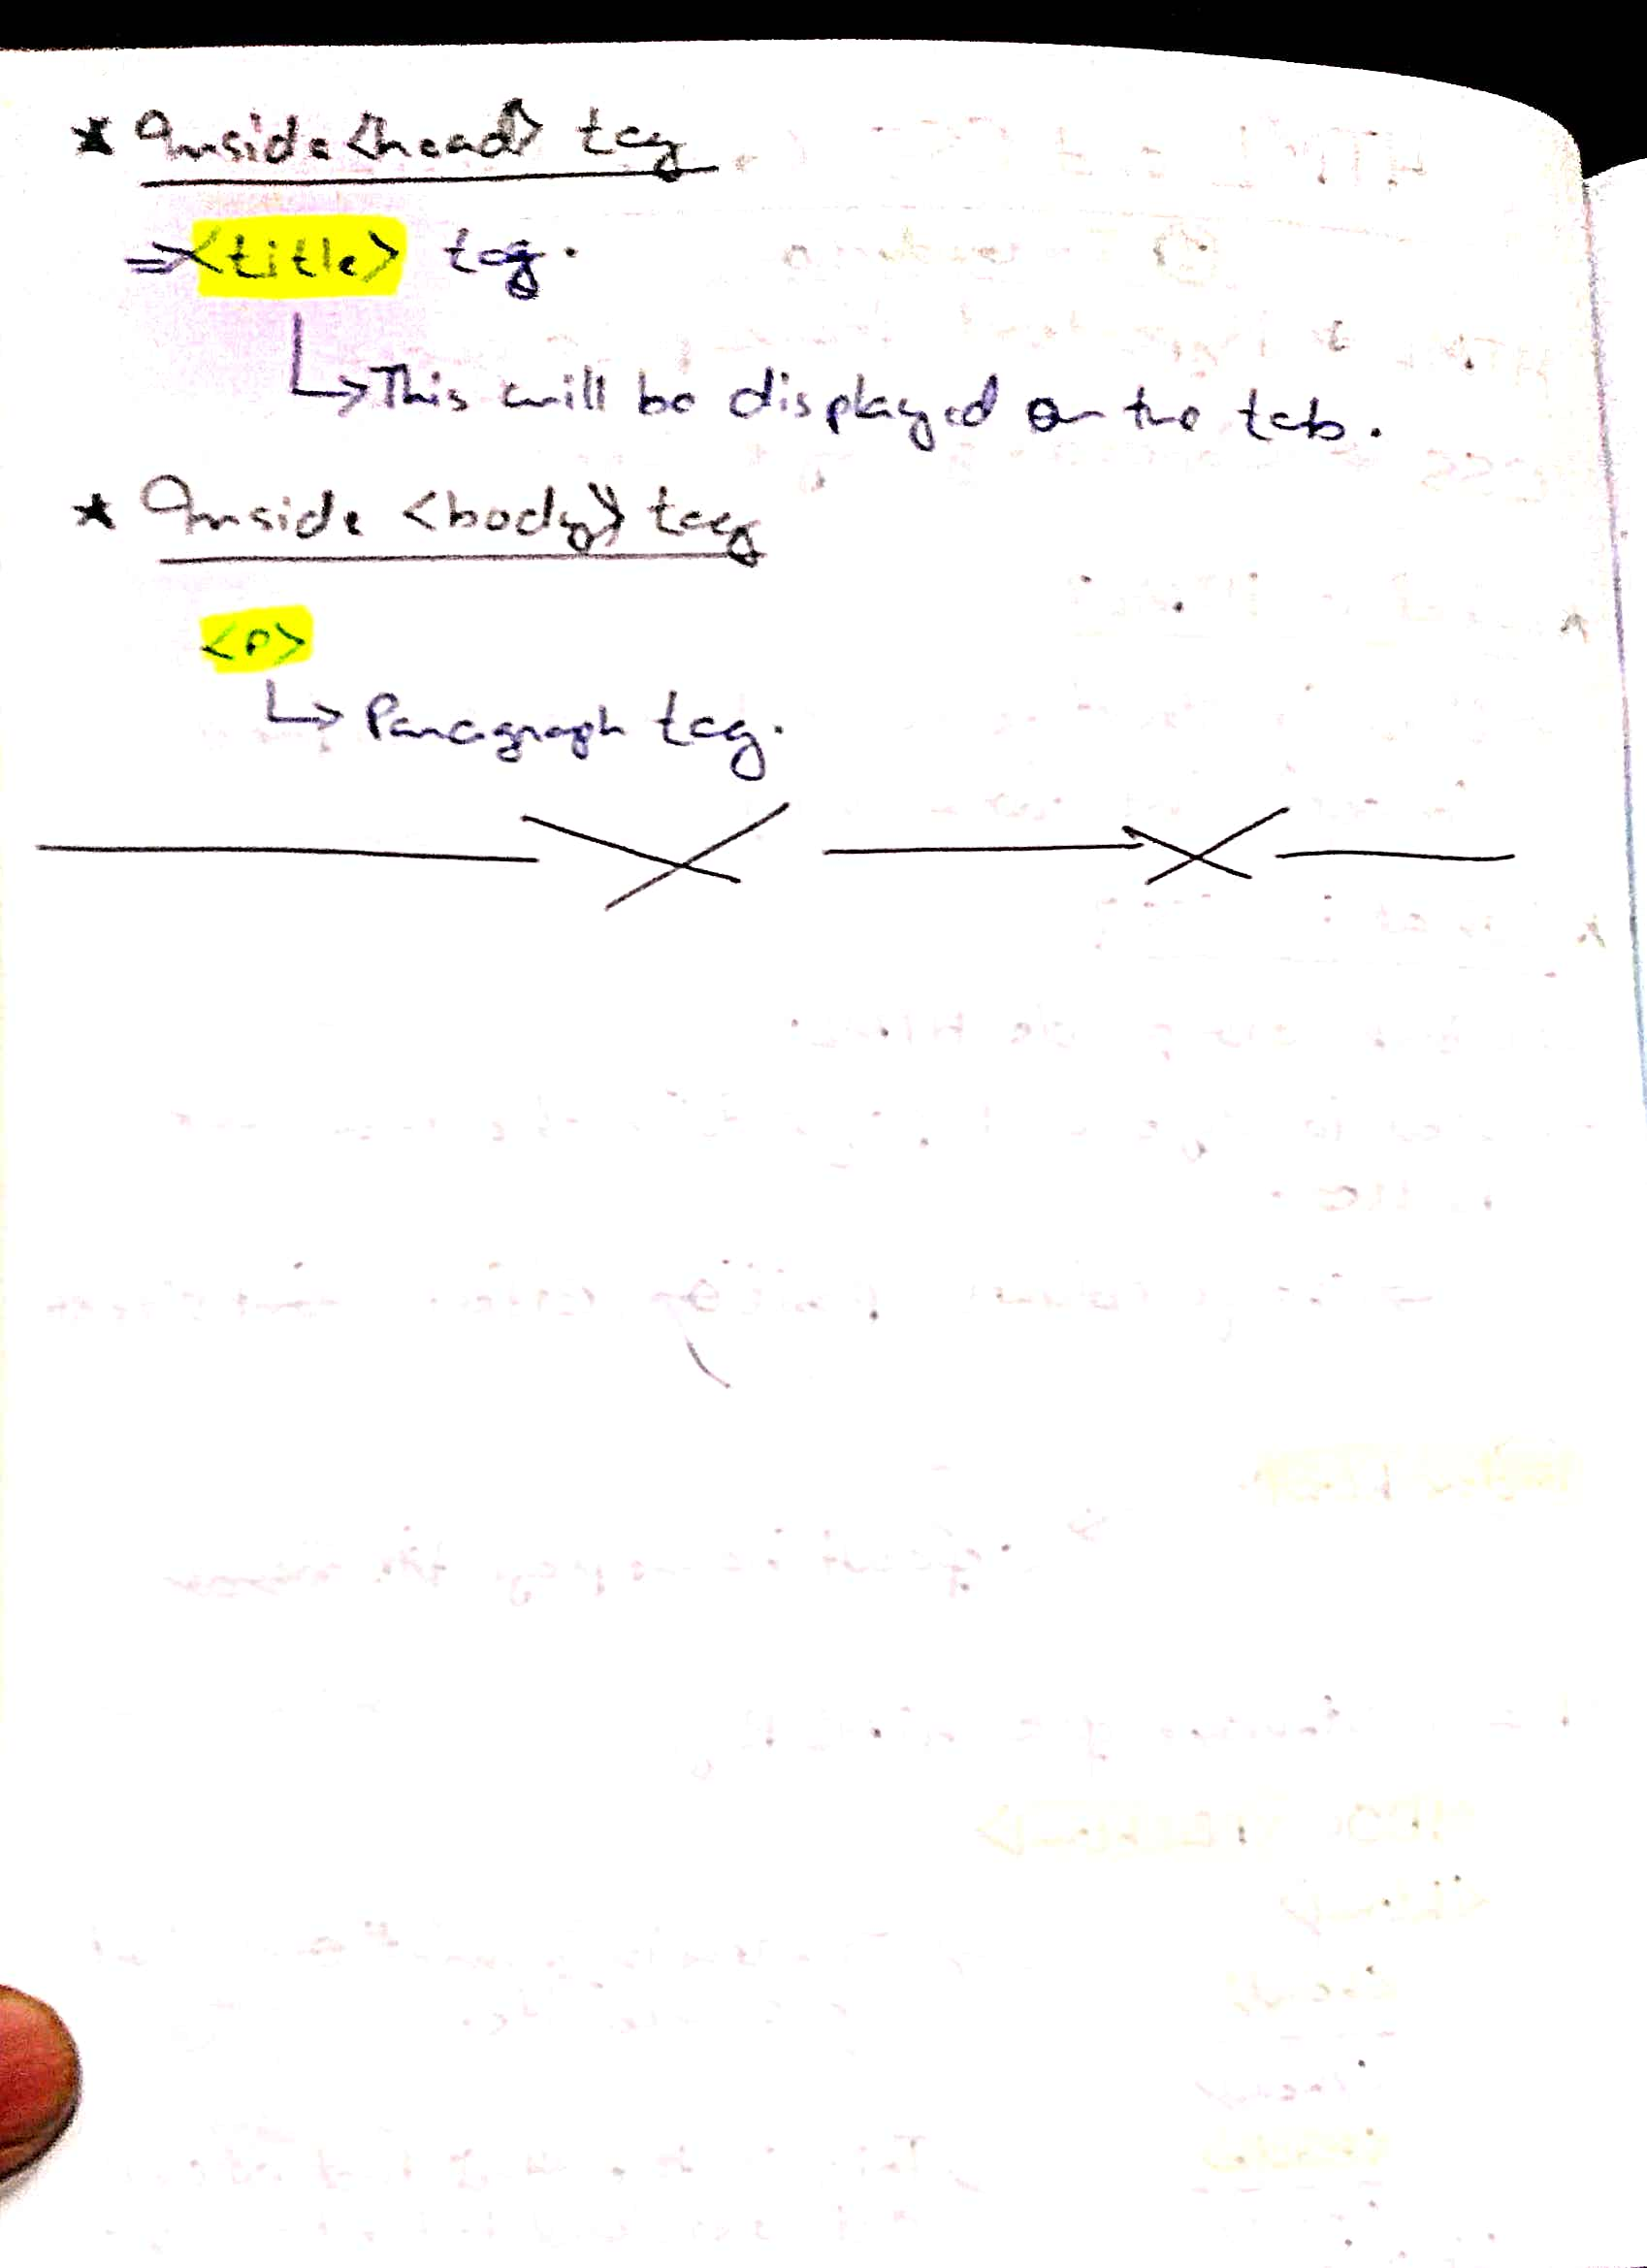 * Inside <head> tag
⇒ <title> tag.
↳ This will be displayed on the tab.
* Inside <body> tag
<p>
↳ Paragraph tag.